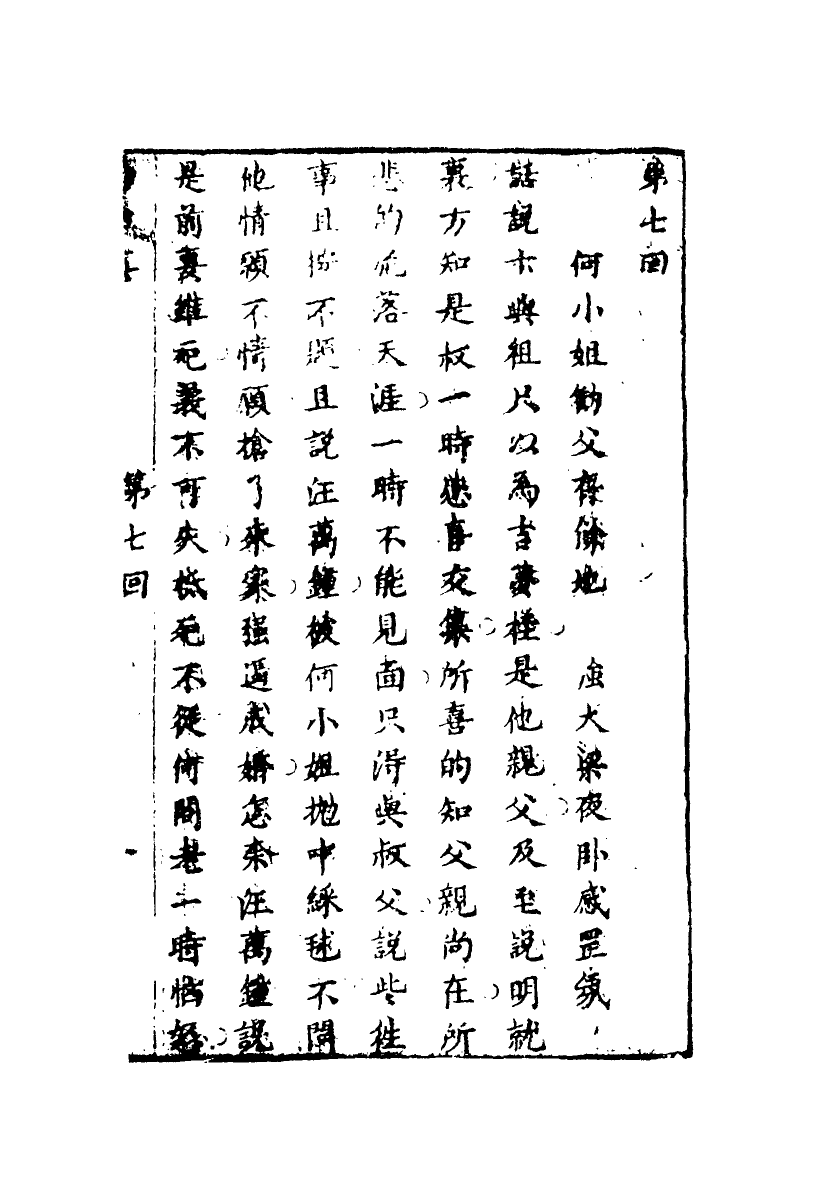 第七回
何小姐勸父在餘地 虽大梁夜卧感罡氛
話說卞與祖只以為吉夢樁是他親父及至說明就
裏方知是叔一時悲喜交集所喜的知父親尚在所
悲的流落天涯一時不能見面只得與叔父說些徃
事且按不題且說汪萬鐘被何小姐拋中綵毬不問
他情願不情願搶了來家强逼成婚怎奈汪萬鐘說
是前妻雖死義不可失抵死不從何閣老一時惱
第七回
一